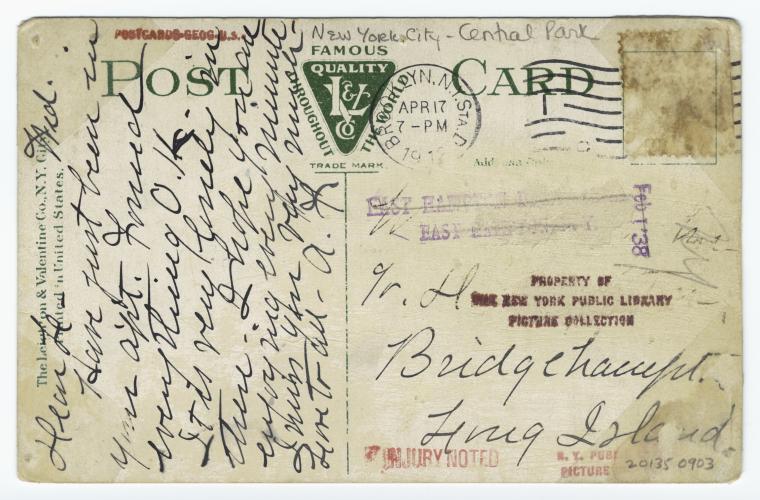 POSTCARDS-GEOG-U.S.
New York City - Central Park
POST CARD
FAMOUS
QUALITY
THROUGHOUT
THE WORLD
V&L
CO
TRADE MARK
BROOKLYN, N.Y. STA. D
APR 17
7-PM
The Leighton & Valentine Co., N.Y. City.
Printed in United States.
Wed.
Dear
Have just been in
your apt. I found
everything O.K.
It is very lonely in
there. I hope you are
enjoying every minute.
I miss you very much.
Love to all - A.
EAST HAMPTON
EAST
Feb 1 '38
PROPERTY OF
THE NEW YORK PUBLIC LIBRARY
PICTURE COLLECTION
Bridgehampt.
Long Island.
INJURY NOTED
N. Y. PUBL
PICTURE
20135 0903